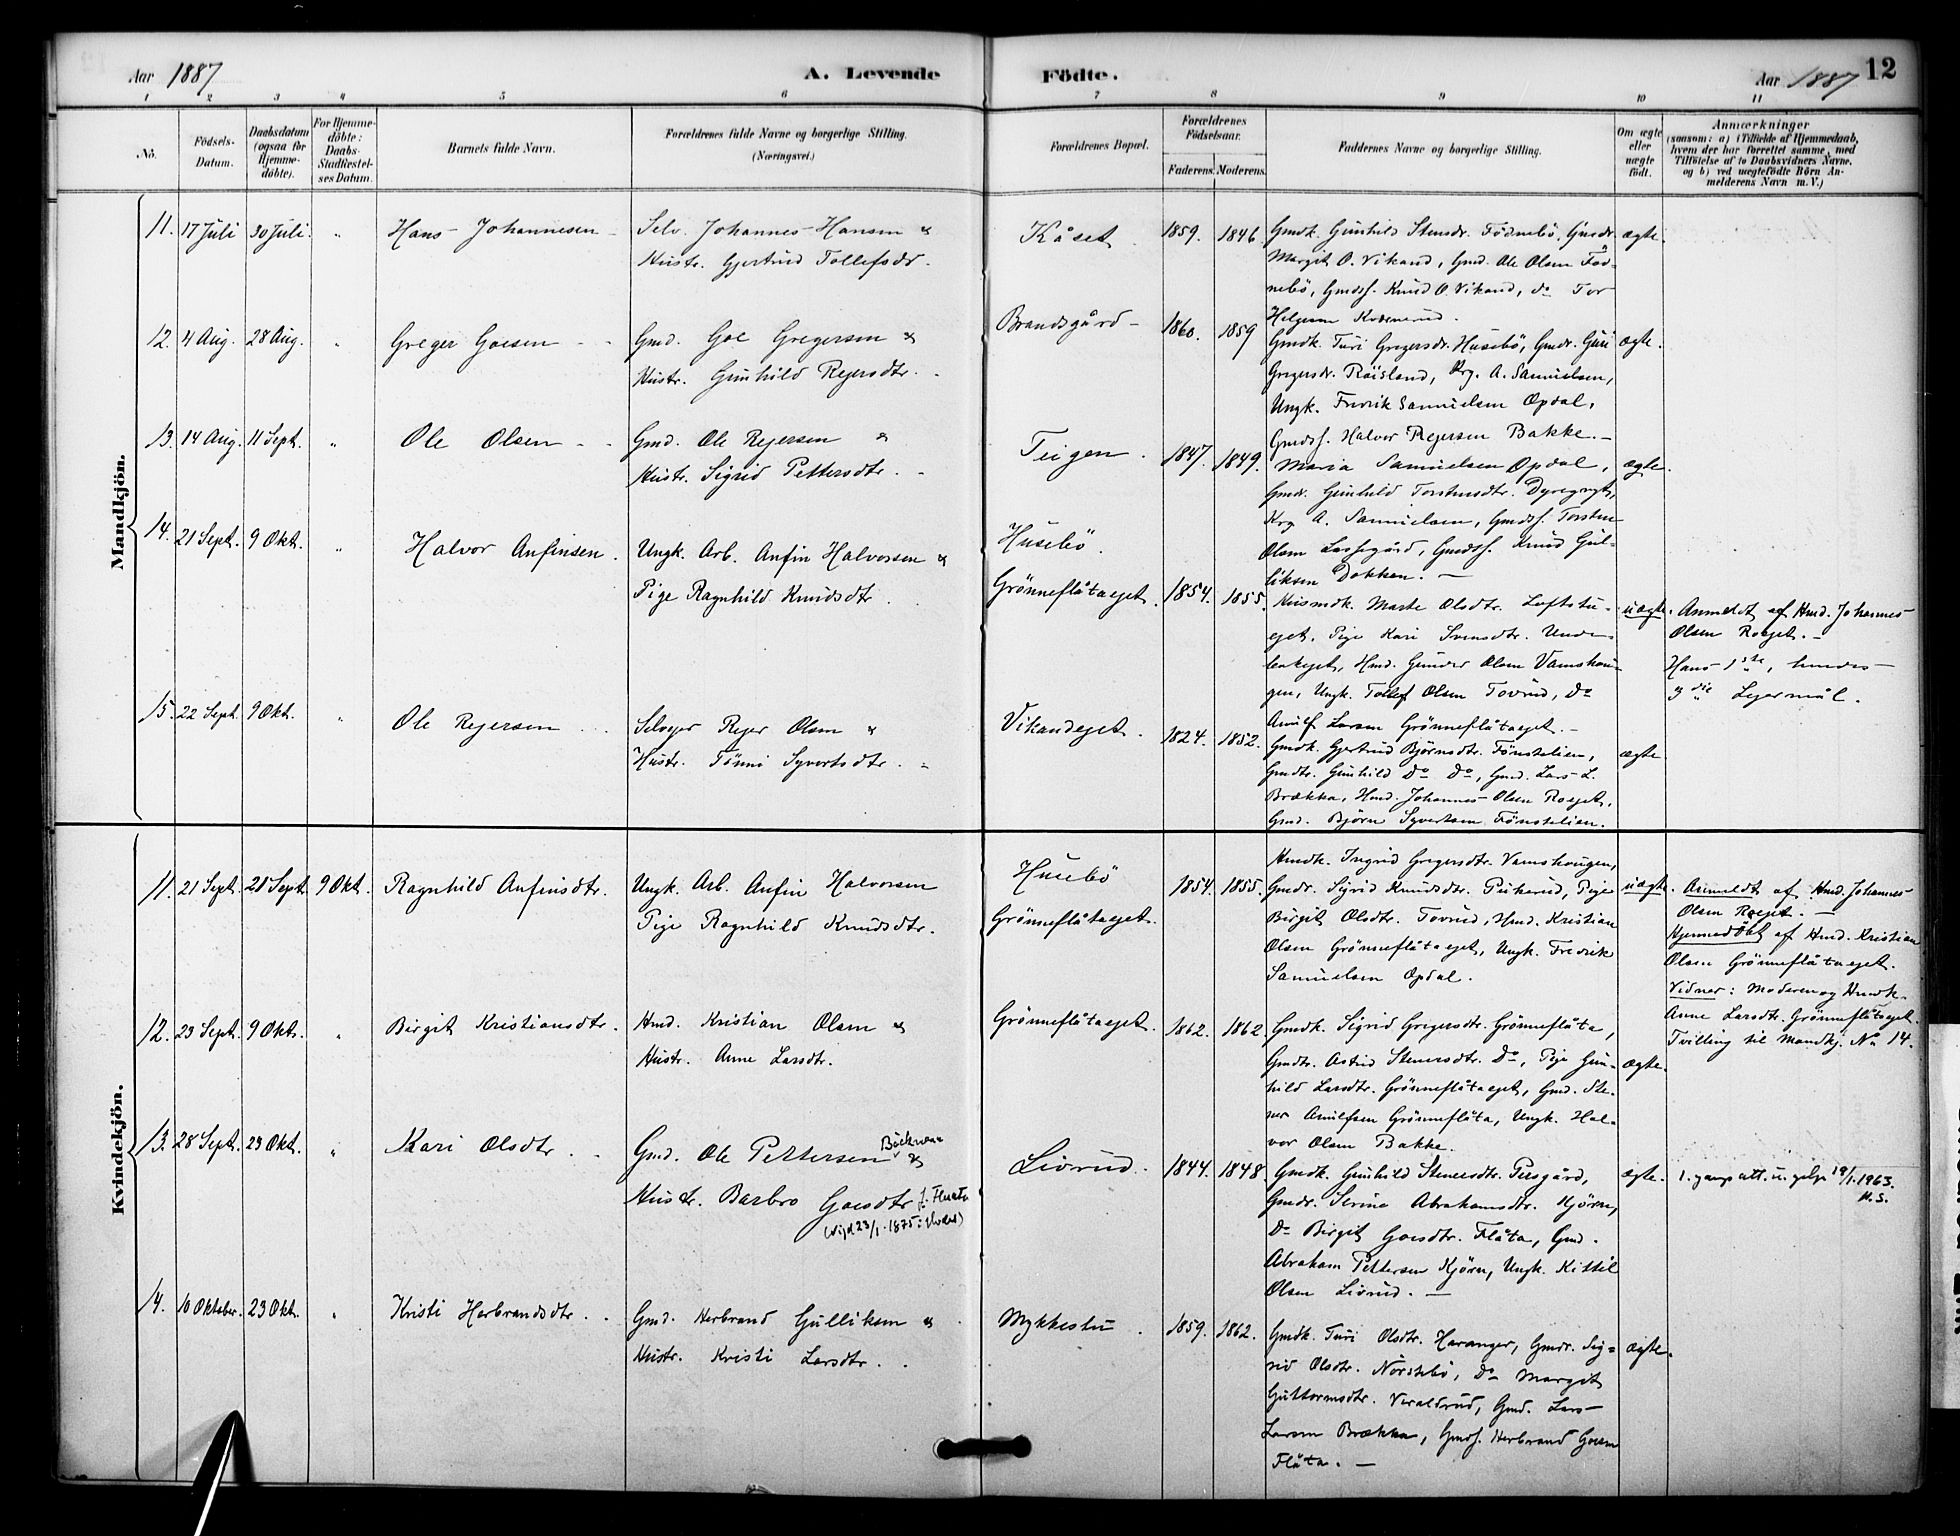 Aar 1887
A. Levende
Födte.
Aar 1887
12
1 2 3 4 5 6 7 8 9 10 11
No.
Födsels-
Datum.
Daabsdatum
(ogsaa for
Hjemme-
döbte).
For Hjemme-
döbte:
Daabs-
Stadfæstel-
ses Datum.
Barnets fulde Navn.
Forældrenes fulde Navne og borgerlige Stilling.
(Næringsvei.)
Forældrenes Bopæl.
Forældrenes
Födselsaar.
Faderens. Moderens.
Faddernes Navne og borgerlige Stilling.
Om ægte
eller
uægte
födt.
Anmærkninger
(saasom: a) i Tilfælde af Hjemmedaab,
hvem der har forrettet samme, med
Tilföielse af to Daabsvidners Navne,
og b) ved uægtefödte Börn An-
melderens Navn m. V.)
Mandkjön.
11. 17 Juli 30 Juli. " Hans Johannesen
Selv. Johannes Hansen &
Hustr. Gjertrud Tollefsdr.
Kåset. 1859. 1846.
Gmdk. Gunhild Stensdr. Fødnebö, Gmdr.
Margit O. Vikand, Gmd. Ole Olsen Föd-
nebö, Gmdss. Knud O. Vikand, do Tor
Helgesen
ægte.
12. 4 Aug. 28 Aug. " Greger Goesen
Gmd. Goe Gregersen &
Hustr. Gunhild Rejersdtr.
Brandsgård 1860. 1859
Gmdk. Turi Gregersdr. Husebö, Gmdr. Guri
Gregersdr. Röisland, Krg. A. Samuelsen,
Ungk. Fredrik Samuelsen Opdal,
Gmdss. Halvor Rejersen Bakke.
ægte.
13. 14 Aug. 11 Sept. " Ole Olsen
Gmd. Ole Rejersen &
Hustr. Sigrid Pettersdtr.
Teigen. 1847. 1849.
Maria Samuelsen Opdal,
Gmdr. Gunhild Torstensdtr.
Krg A. Samuelsen, Gmdss. Torsten
Olsen Gmdss. Knud Gul-
liksen Dokken.
ægte.
14. 21 Sept. 9 Okt. " Halvor Anfinsen.
Ungk. Arb. Anfin Halvorsen &
Pige Ragnhild Knudsdtr.
Husebö.
Grönneflåtaeget. 1854. 1855.
Husmdk. Marte Olsdtr. Loftstu-
eget, Pige Kari Svensdtr. Unde-
Hmd. Gunder Olsen Vamshou-
gen, Ungk. Tollef Olsen Tovrud, Do
Larsen Grönneflåtaeget.
uægte.
Anmeldt af Hmd. Johannes
Olsen Roeget.
Hans 1ste, hendes
3die Lejermål.
15. 22 Sept. 9 Okt. " Ole Rejersen
Selvejer Rejer Olsen &
Hustr. Tönni Syvertsdtr.
Vikandeget. 1824. 1852.
Gmdk. Gjertrud Björnsdtr. Fönstelien,
Gmdtr. Gunhild Do Do, Gmd. Lars L.
Brække, Hmd. Johannes Olsen Roeget,
Gmd. Björn Syvertsen Fönstelien.
ægte
Kvindekjön.
11. 21 Sept. 21 Sept. 9 Okt. Ragnhild Anfinsdtr.
Ungk. Arb. Anfin Halvorsen
Pige Ragnhild Knudsdtr.
Husebö
Grönneflåtaeget. 1854. 1855.
Hmdk. Ingrid Gregersdtr. Vamshougen,
Gmdr. Sigrid Knudsdtr. Pige
Birgit Olsdtr. Tovrud, Hmd. Kristian
Olsen Grönneflåtaeget, Ungk. Fredrik
Samuelsen Opdal.
uægte.
Anmeldt af Hmd. Johannes
Olsen Roeget.
Hjemmedöbt af Hmd. Kristian
Olsen Grönneflåtaeget.
Vidner: Moderen og Hmdk.
Anne Larsdtr. Grönneflåtaeget.
Tvilling til Mandkj. No 14.
12. 23 Sept. 9 Okt. " Birgit Kristiansdtr.
Hmd. Kristian Olsen &
Hustr. Anne Larsdtr.
Grönneflåtaeget. 1862. 1862
Gmdk. Sigrid Gregersdtr. Grönneflåta,
Gmdtr. Astrid Stenersdtr. Do, Pige Gun-
hild Larsdtr. Grönneflåtaeget, Gmd. Ste-
ner Grönneflåta, Ungk. Hal-
vor Olsen Bakke.
ægte.
13. 28 Sept. 23 Okt. " Kari Olsdtr.
Gmd. Ole Pettersen &
Hustr. Barbro Goesdtr
(vigd 23/1-1875
Livrud. 1844. 1848.
Gmdk. Gunhild Stenersdtr. Persgård,
Gmdr. Serine Abrahamsdtr. Kjörn,
Do Birgit Goesdtr. Flåta, Gmd.
Abraham Pettersen Kjörn, Ungk. Kittil
Olsen Livrud.
ægte.
1. gangs att. u. 19/1.1963.
H.S.
14. 10 Oktober. 23 Okt. " Kristi Herbrandsdtr.
Gmd. Herbrand Gulliksen &
Hustr. Kristi Larsdtr.
Mykkestu. 1859. 1862.
Gmdk. Turi Olsdtr. Haranger, Gmdr. Sig-
rid Olsdtr. Nörstebö, Do Margit
Guttormsdtr. Veraldrud, Gmd. Lars
Larsen Brække, Gmds. Herbrand Goesen
Flåta.
ægte.